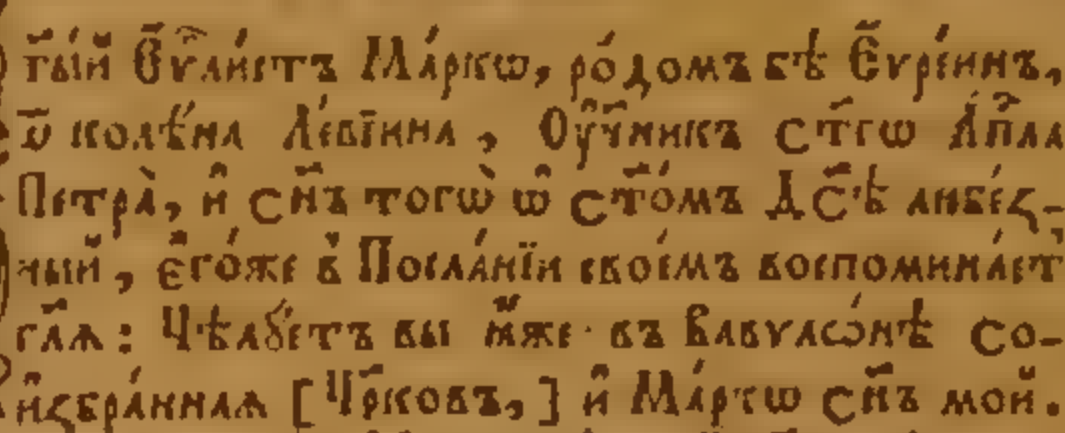 ст҃ы́й Єѵ҃ли́стъ Ма́рко, ро́домъ бѣ̀ Єѵре́инъ,
ѿ колѣ́на Ле́віина, Оу҆ч҃никъ ст҃гѡ А҆п҃ла
Петра̀, и҆ сн҃ъ тогѡ̀ ѡ҆ ст҃о́мъ Дс҃ѣ любе́з-
ный, є҆го́же в̾ Посла́нїи свое́мъ воспомина́ет
гл҃ѧ: Цѣлꙋ́етъ вы ꙗ҆́же въ Вавѵлѡ́нѣ со-
и҆збра́ннаѧ [Цр҃ковъ,] и҆ Ма́ркѡ сн҃ъ мой.